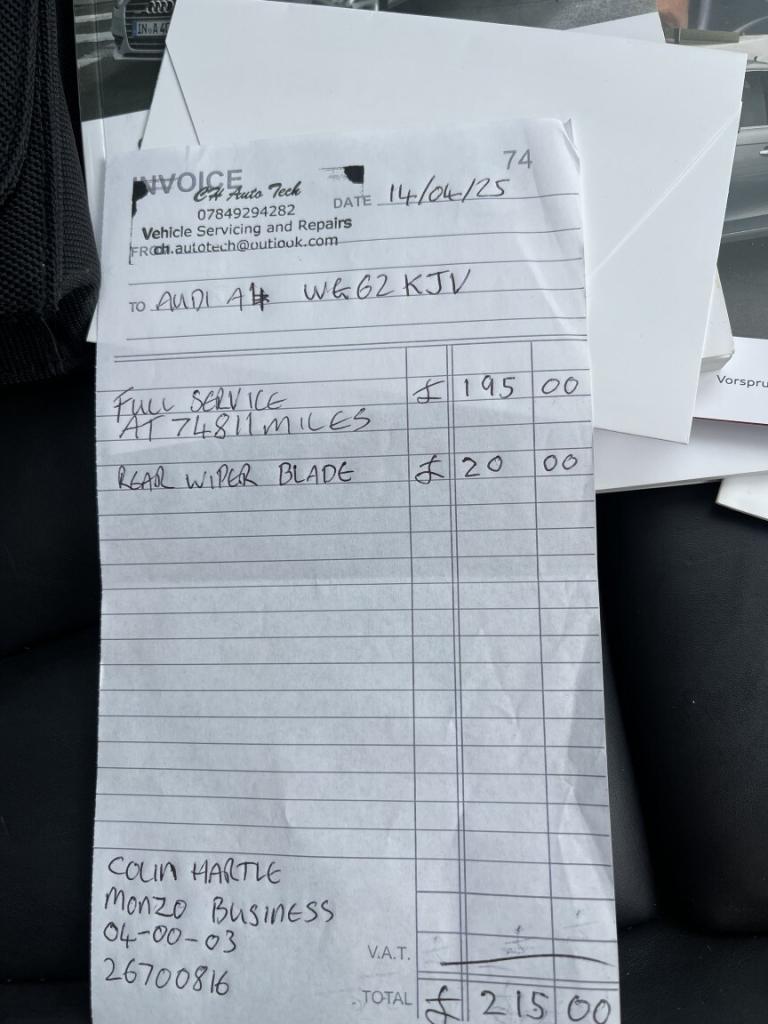 IN·A 4
INVOICE
74
CH Auto Tech
DATE 14/04/25
07849294282
Vehicle Servicing and Repairs
FROM
ch.autotech@outlook.com
TO AUDI A4 WG62 KJV
FULL SERVICE £ 195 00
AT 74811 MILES
REAR WIPER BLADE £ 20 00
Vorspru
COLIN HARTLE
MONZO BUSINESS
04-00-03
26700816
V.A.T.
TOTAL £ 215 00